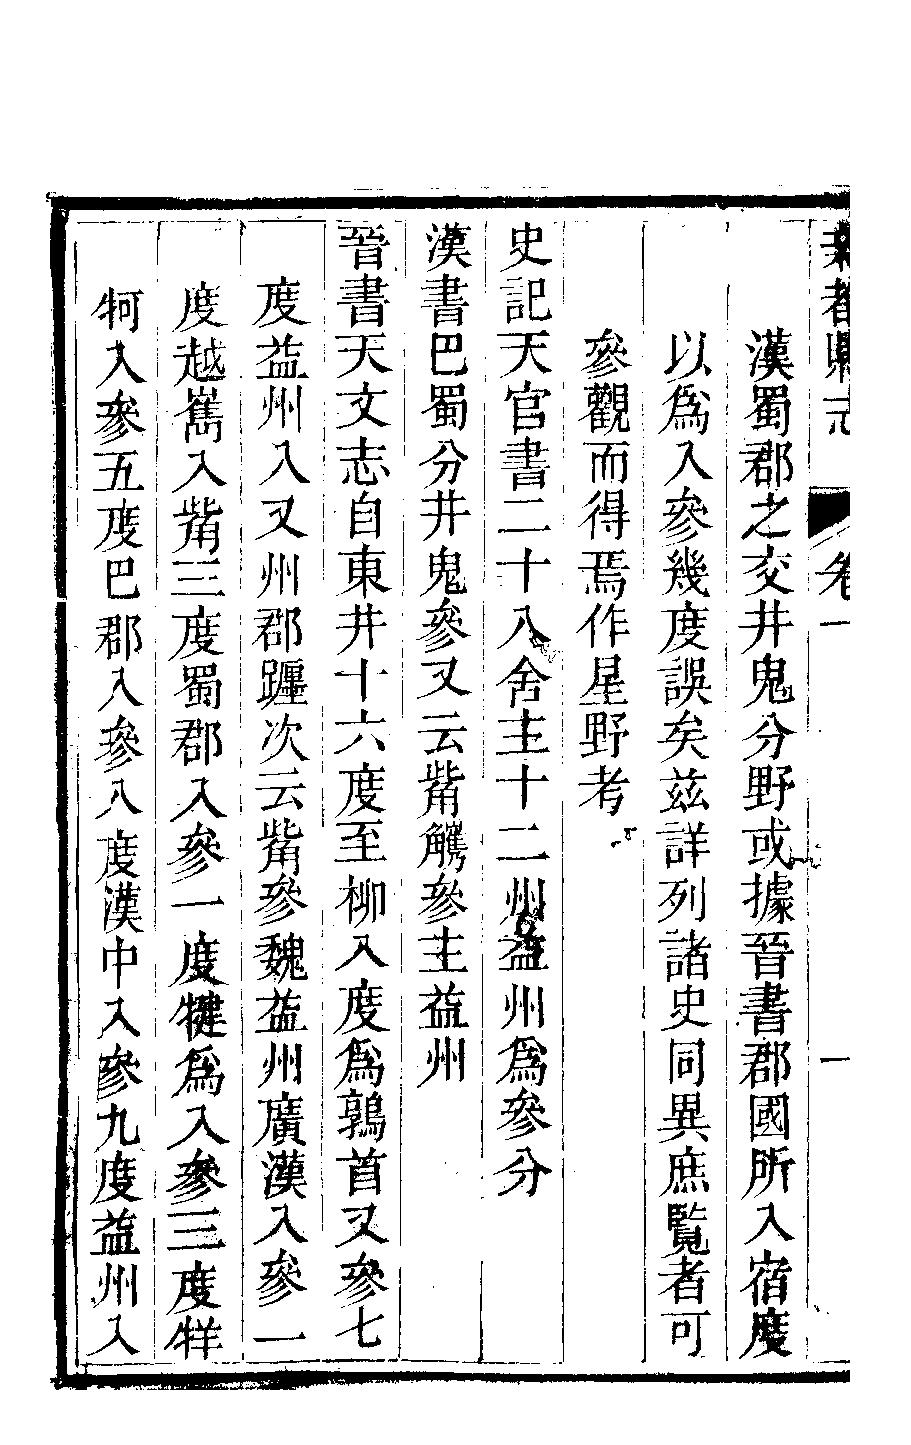 新都縣志
卷一
一
漢蜀郡之交井鬼分野或據晉書郡國所入宿度
以爲入參幾度誤矣茲詳列諸史同異庶覽者可
參觀而得焉作星野考
史記天官書二十八舍主十二州益州爲參分
漢書巴蜀分井鬼參又云觜觿參主益州
晉書天文志自東井十六度至柳八度爲鶉首又參七
度益州入又州郡躔次云觜參魏益州廣漢入參一
度越巂入觜三度蜀郡入參一度犍爲入參三度牂
牁入參五度巴郡入參八度漢中入參九度益州入